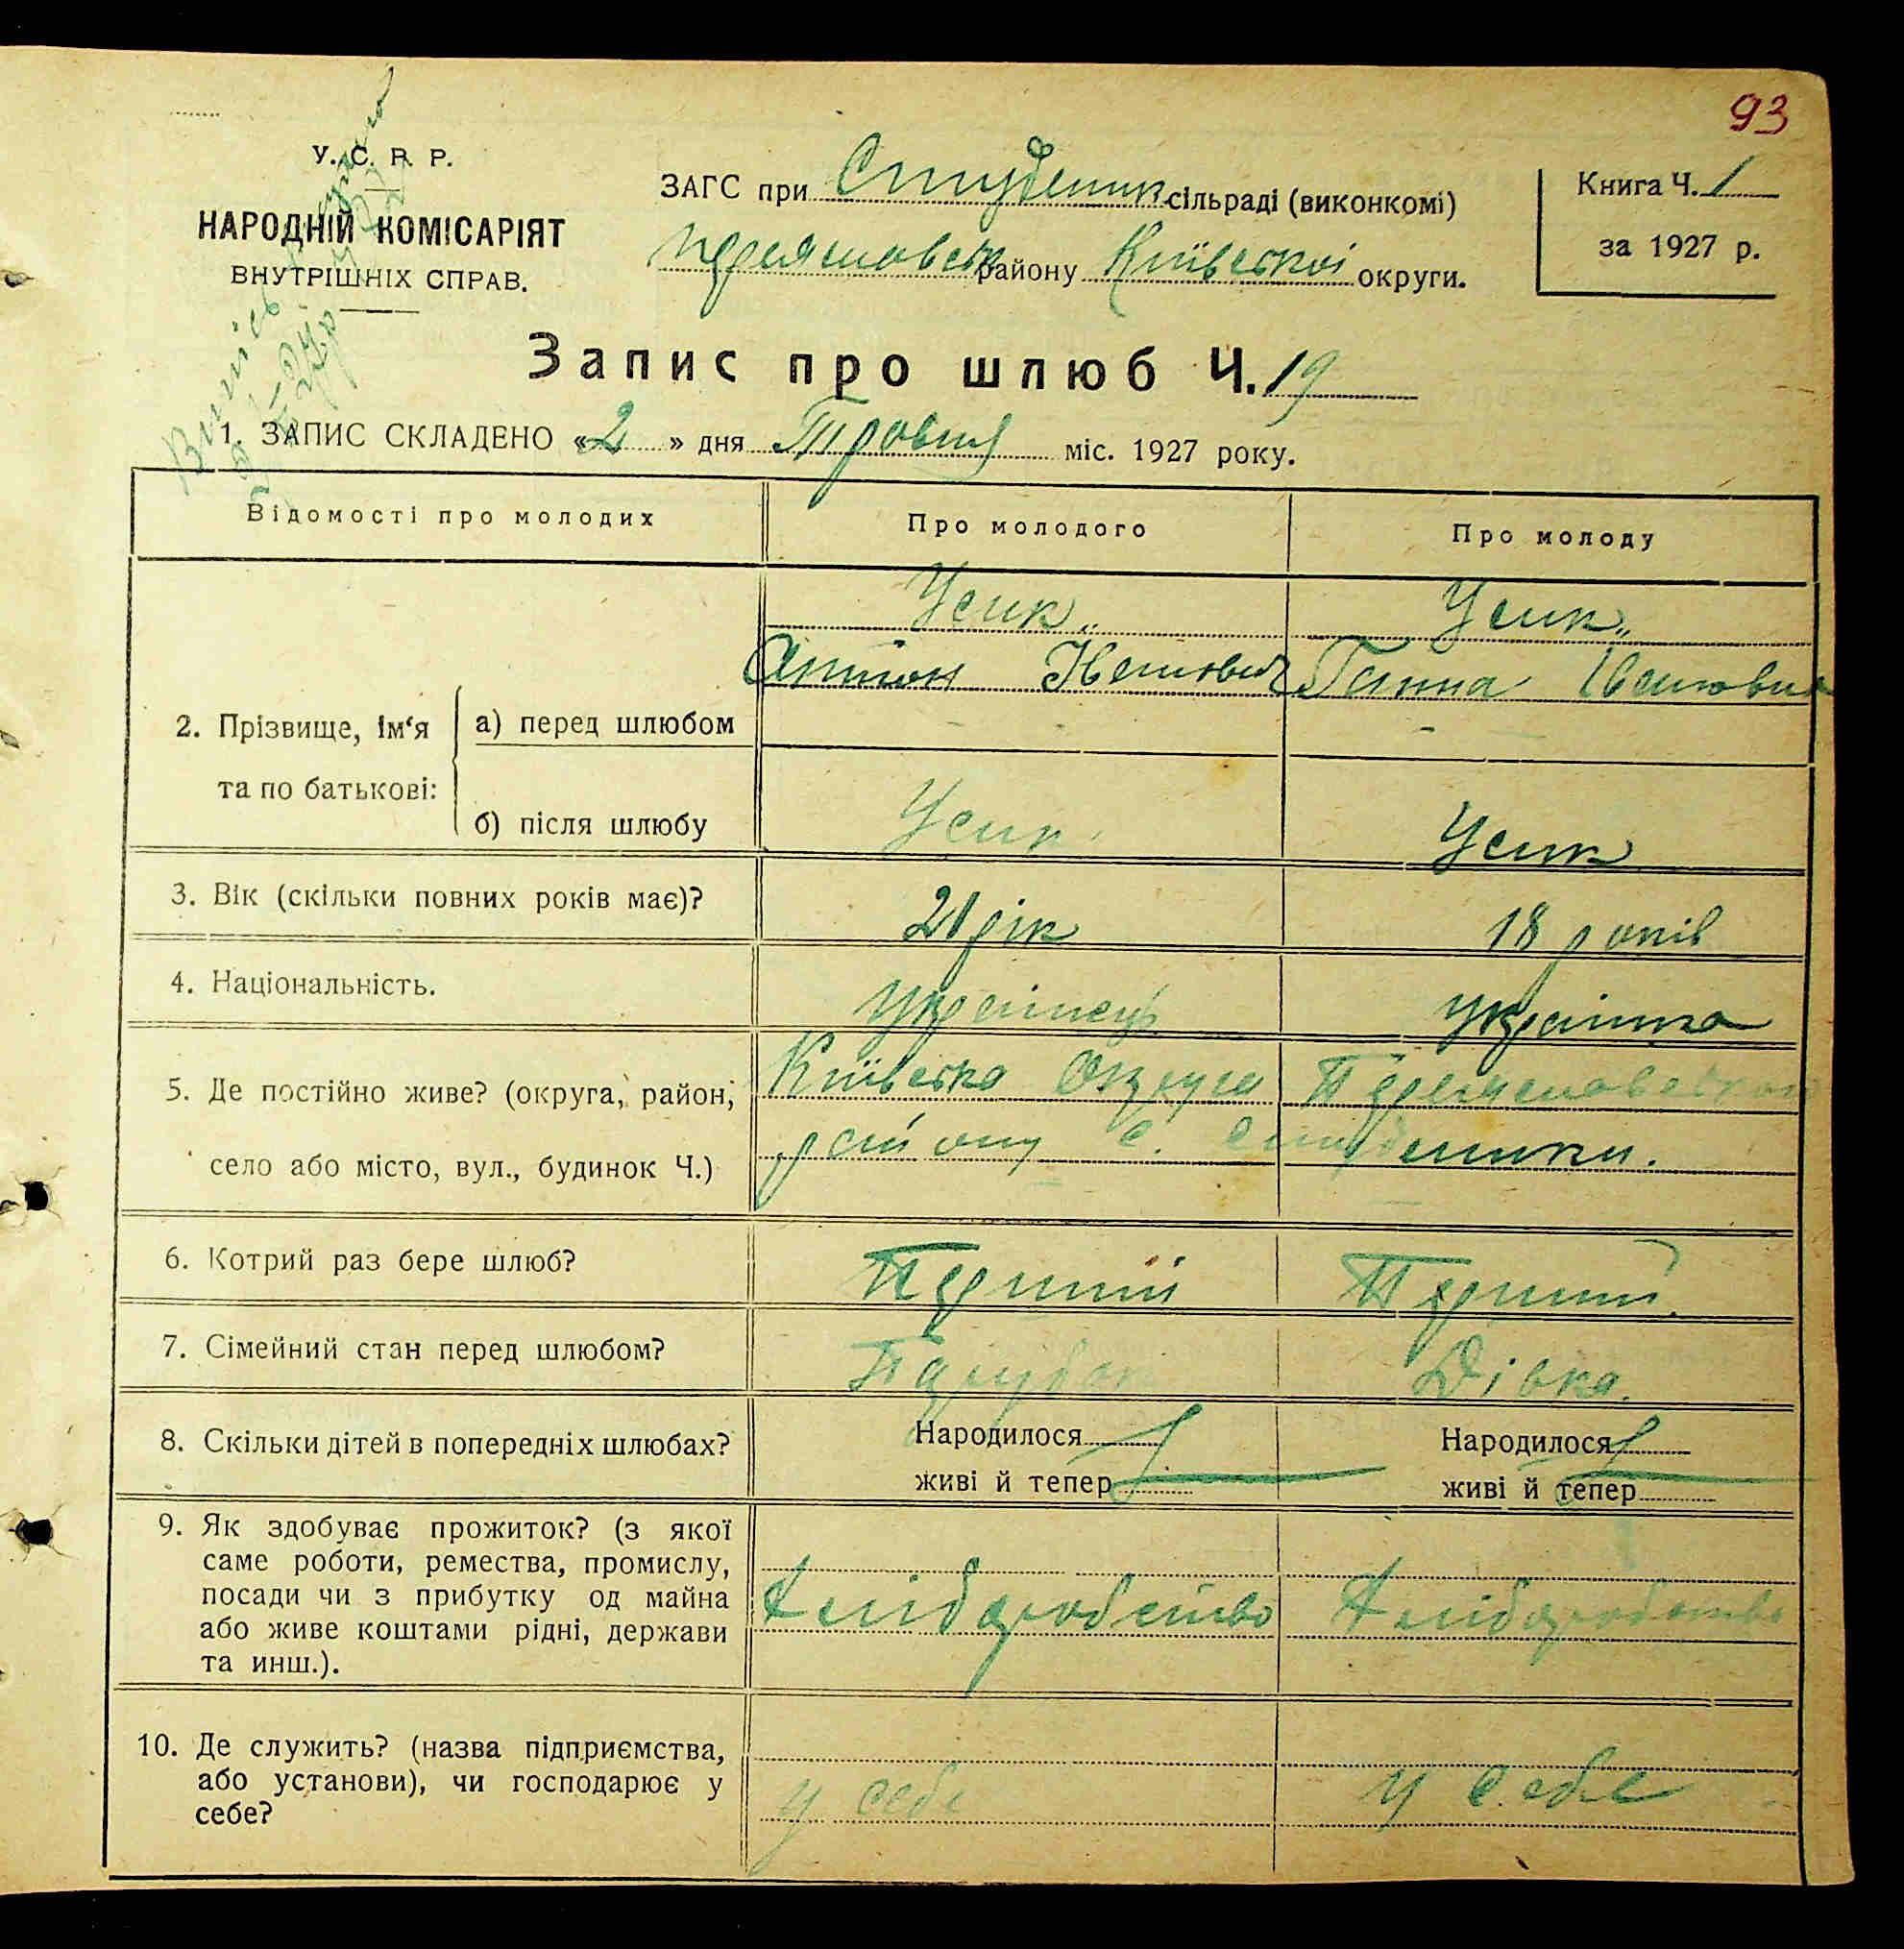 93
У. С. Р. Р.
НАРОДНІЙ КОМІСАРІЯТ
ВНУТРІШНІХ СПРАВ.
ЗАГС при Студеник сільраді (виконкомі)
Переяславськ району Київської округи.
Книга Ч. 1
за 1927 р.
Запис про шлюб Ч. 19
1. ЗАПИС СКЛАДЕНО «2» дня Травня міс. 1927 року.
Відомості про молодих Про молодого Про молоду
Усик Усик
Антон Ганна Івановна
2. Прізвище, Ім'я та по батькові:
а) перед шлюбом
б) після шлюбу Усик Усик
3. Вік (скільки повних років має)? 21 рік 18 років
4. Національність. Українець Українка
5. Де постійно живе? (округа, район, Київська Округа Переяславського
село або місто, вул., будинок Ч.) району с. Студеники.
6. Котрий раз бере шлюб? Перший Перший
7. Сімейний стан перед шлюбом? Парубок Дівка.
8. Скільки дітей в попередніх шлюбах? Народилося Народилося
живі й тепер живі й тепер
9. Як здобуває прожиток? (з якої
саме роботи, ремества, промислу,
посади чи з прибутку од майна Хліборобство Хліборобство
або живе коштами рідні, держави
та инш.).
10. Де служить? (назва підприємства,
або установи), чи господарює у у себе у себе
себе?